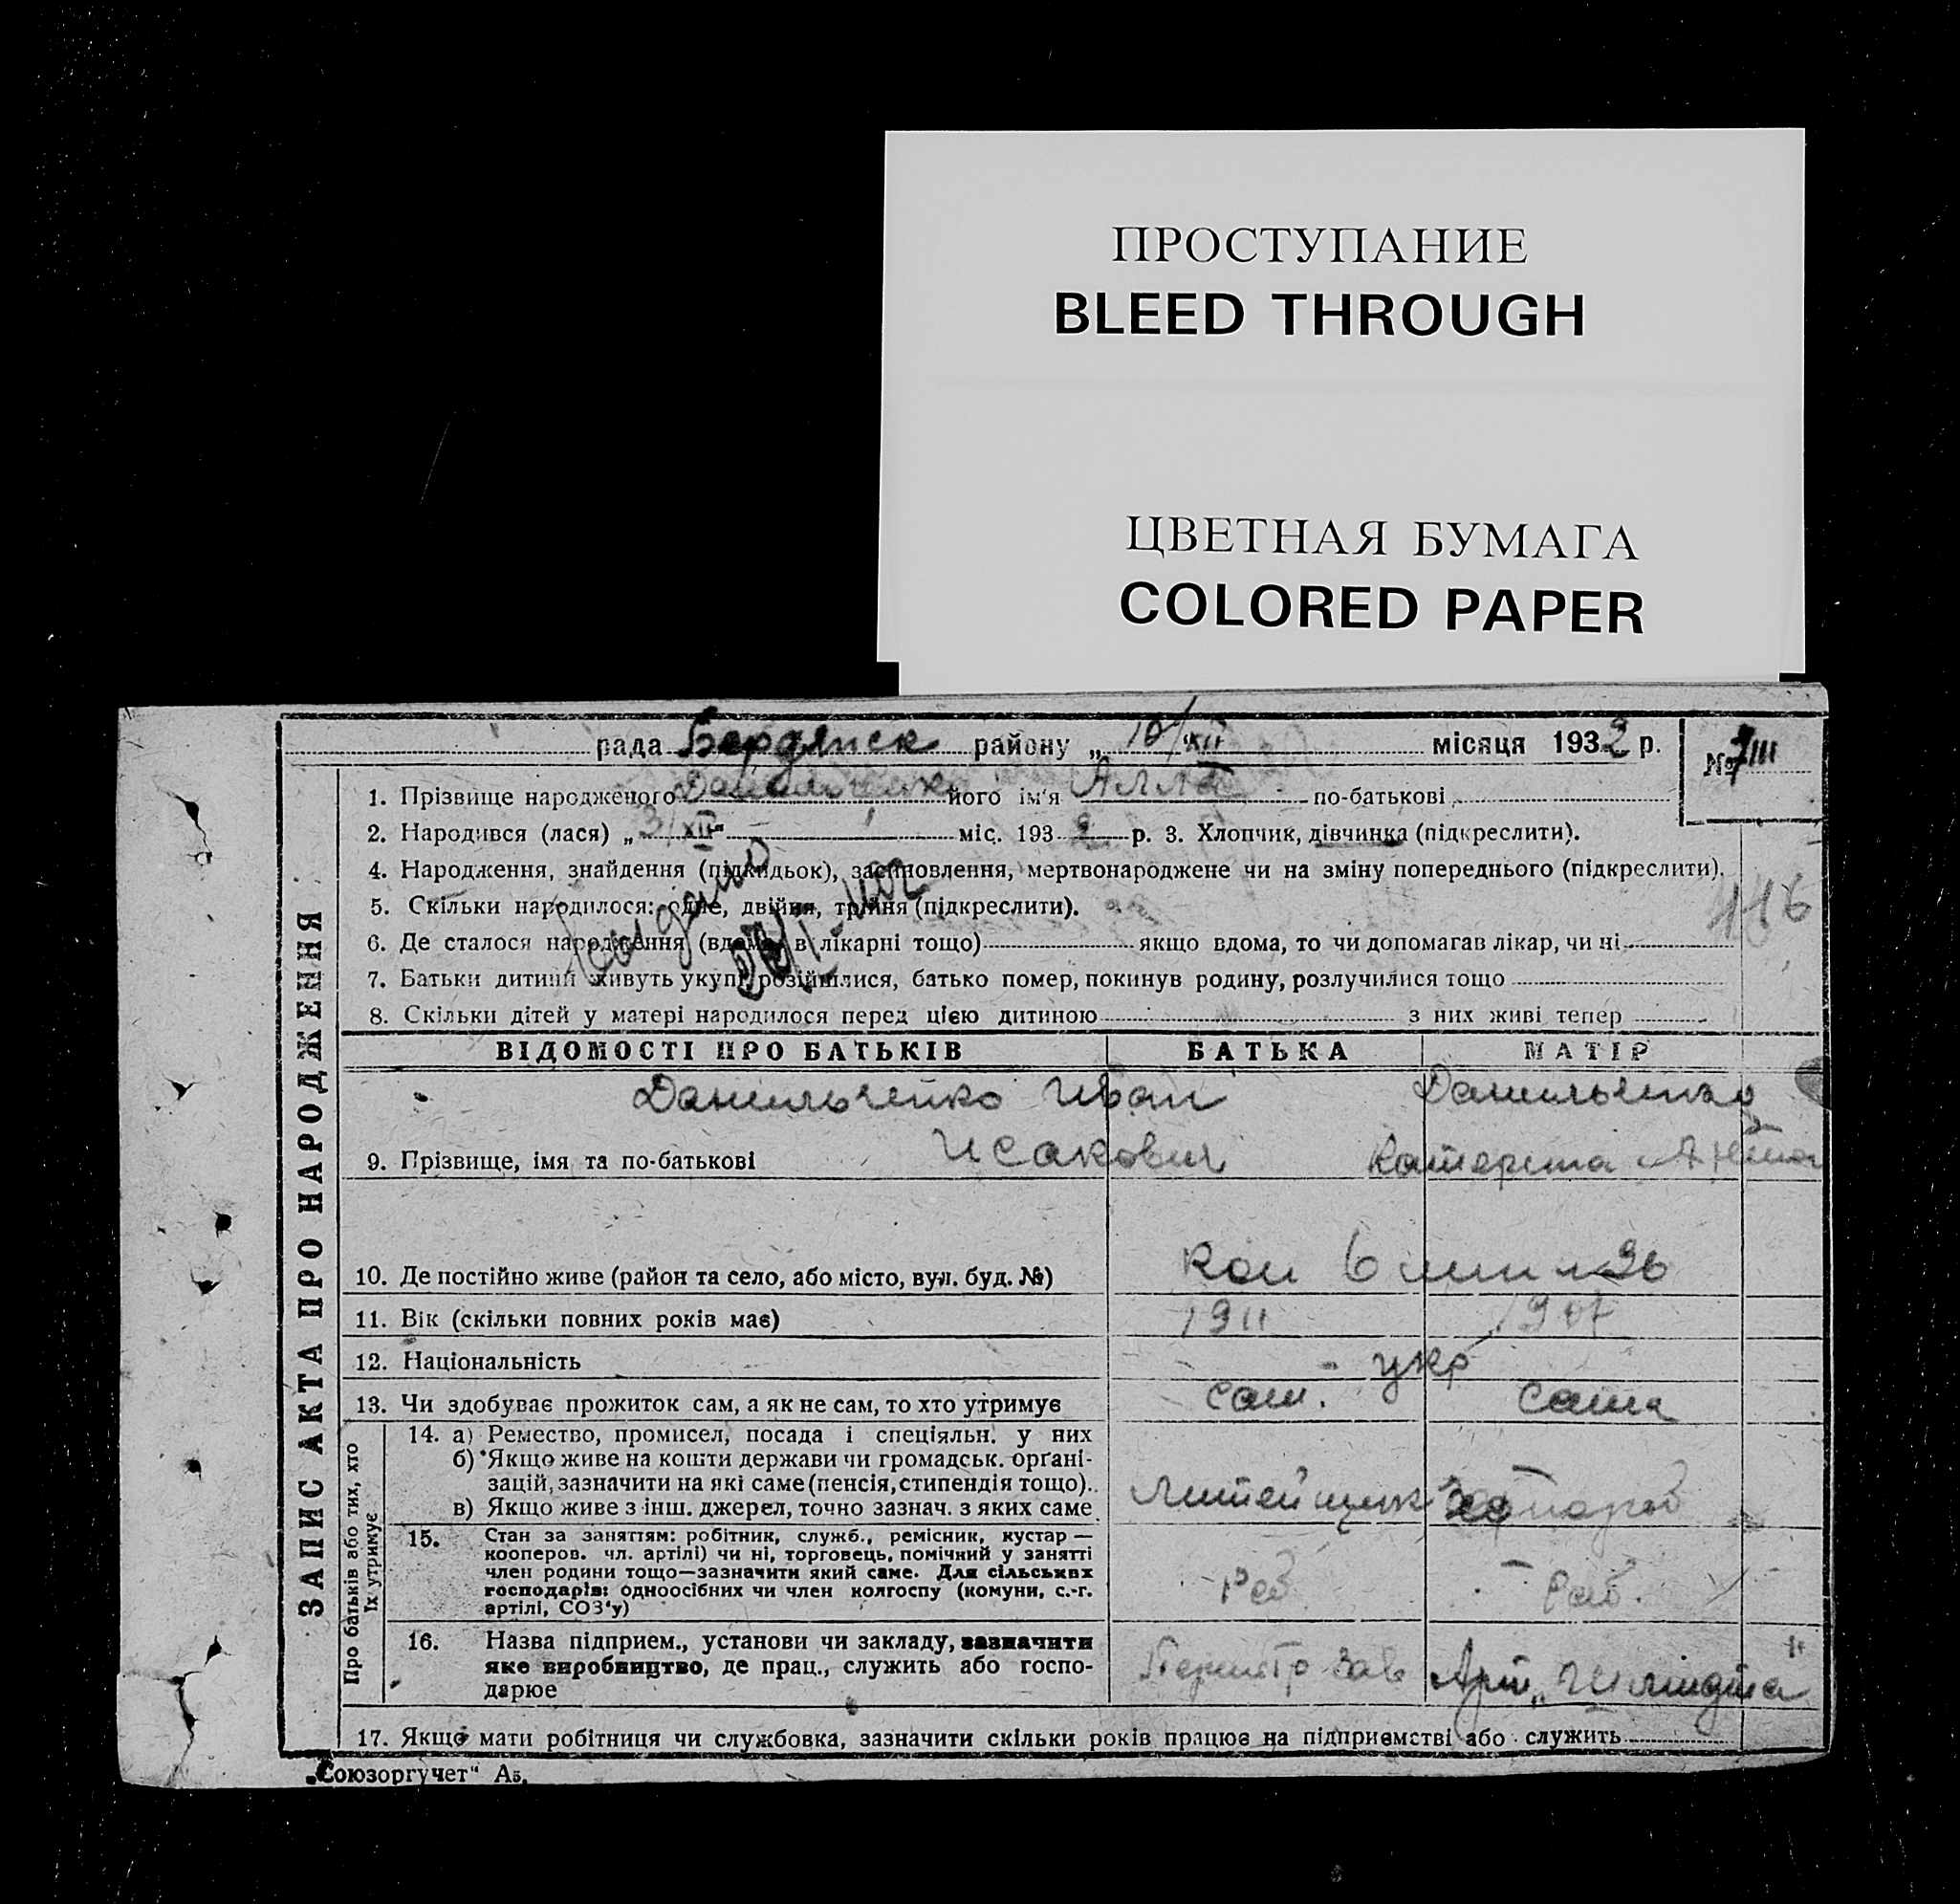 ПРОСТУПАНИЕ
BLEED THROUGH
ЦВЕТНАЯ БУМАГА
COLORED PAPER
рада Бердянск району „ 10/XII місяця 1932 р.
№ 7111
ЗАПИС АКТА ПРО НАРОДЖЕННЯ
1. Прізвище народженого Данильченко його ім'я Алла по-батькові
2. Народився (лася) „ 3/XII міс. 1932 р. 3. Хлопчик, дівчинка (підкреслити).
4. Народження, знайдення (підкидьок), застановлення, мертвонароджене чи на зміну попереднього (підкреслити).
5. Скільки народилося: одне, двійня, трійня (підкреслити).
116
6. Де сталося народження (вдома, в лікарні тощо) якщо вдома, то чи допомагав лікар, чи ні
7. Батьки дитини живуть укупі, розійшлися, батько помер, покинув родину, розлучилися тощо
8. Скільки дітей у матері народилося перед цією дитиною з них живі тепер
ВІДОМОСТІ ПРО БАТЬКІВ БАТЬКА МАТІР
Данильченко Иван Данильченко
9. Прізвище, імя та по-батькові Исакович Катерина
10. Де постійно живе (район та село, або місто, вул. буд. №) Кол 6 лин 36
11. Вік (скільки повних років має) 1911 1907
12. Національність укр
13. Чи здобуває прожиток сам, а як не сам, то хто утримує сам. сама
Про батьків або тих, хто їх утримує
14. а) Ремество, промисел, посада і спеціяльн. у них
б) Якщо живе на кошти держави чи громадськ. орґані-
зацій, зазначити на які саме (пенсія, стипендія тощо)..
в) Якщо живе з інш. джерел, точно зазнач. з яких саме Литейщик
15. Стан за заняттям: робітник, служб., ремісник, кустар —
кооперов. чл. артілі) чи ні, торговець, помічний у занятті
член родини тощо—зазначити який саме. Для сільських
господарів: одноосібних чи член колгоспу (комуни, с.-г.
артілі, СОЗ'у) Роб Роб.
16. Назва підприєм., установи чи закладу, зазначити
яке виробництво, де прац., служить або госпо-
дарюе Першотр зав Арт
17. Якщо мати робітниця чи службовка, зазначити скільки років працює на підприємстві або служить
„Союзоргучет" А5.